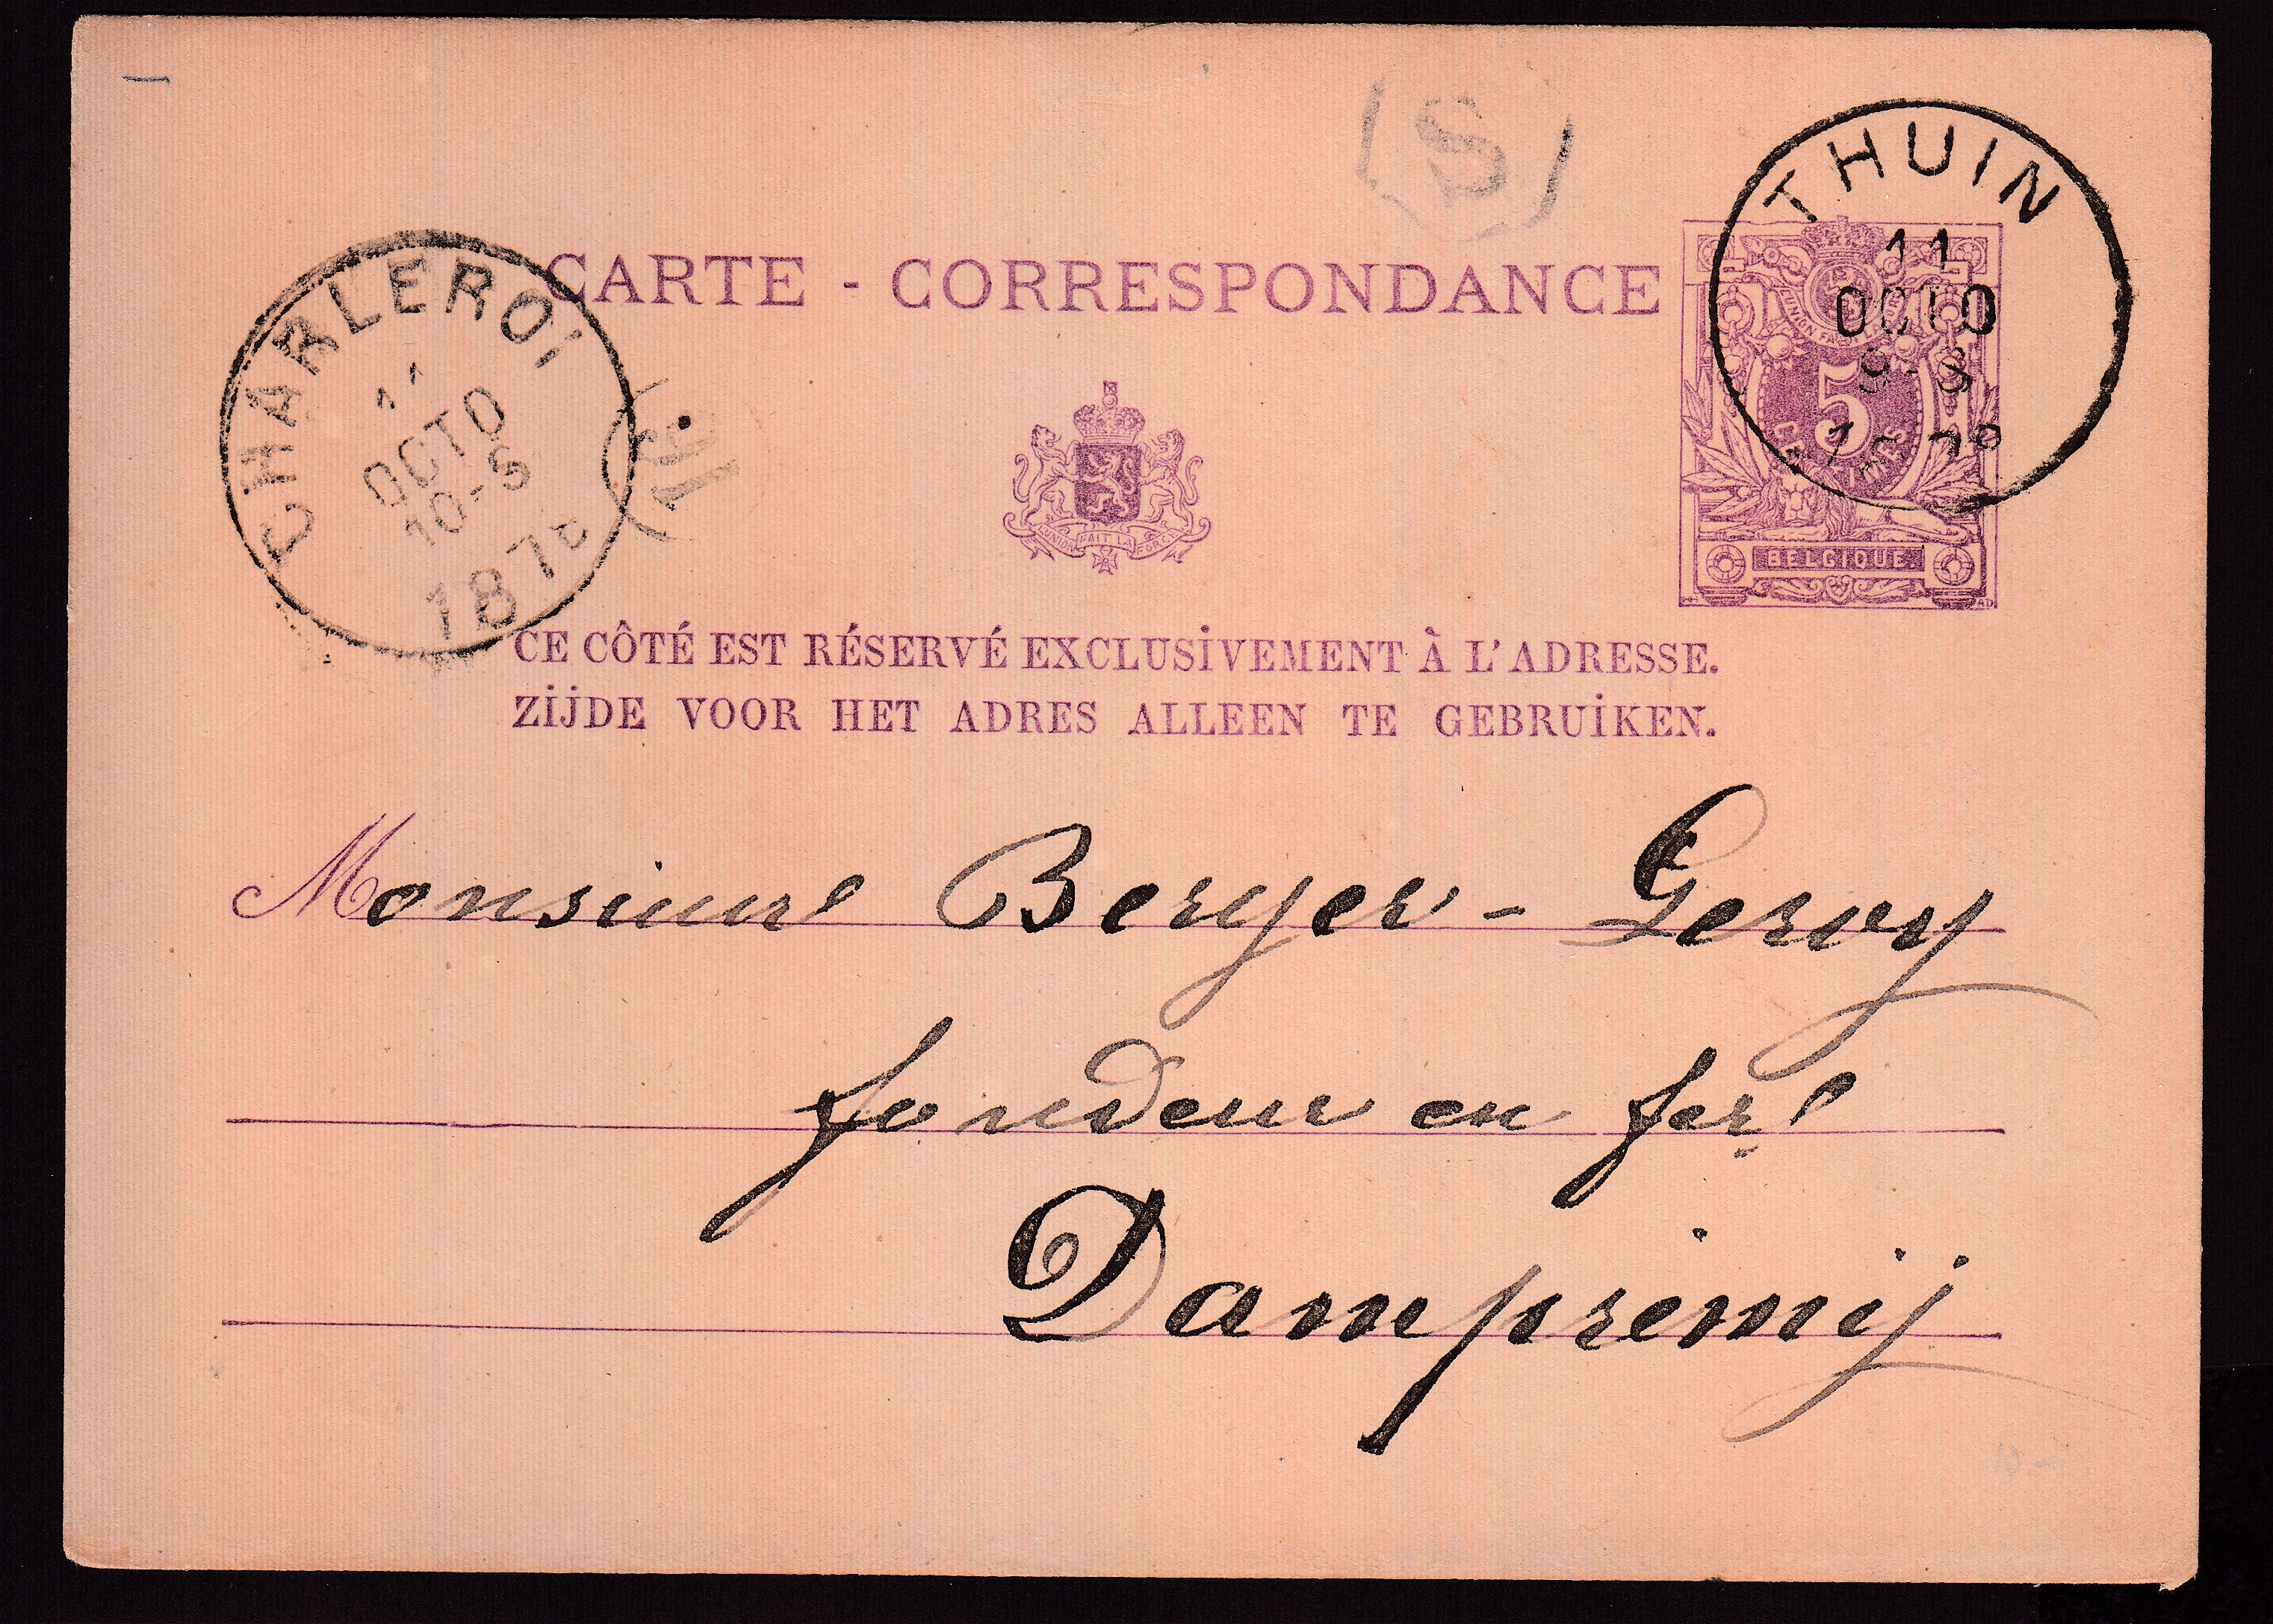 S
THUIN
11
OCTO
9-S
CHARLEROI
11
OCTO
10-S
187
CARTE - CORRESPONDANCE
L'UNION FAIT LA FORCE
5
CENTIMES
BELGIQUE.
CE CÔTÉ EST RÉSERVÉ EXCLUSIVEMENT À L'ADRESSE.
ZIJDE VOOR HET ADRES ALLEEN TE GEBRUIKEN.
Monsieur Berger - Gervy
fondeur en fer
Dampremy